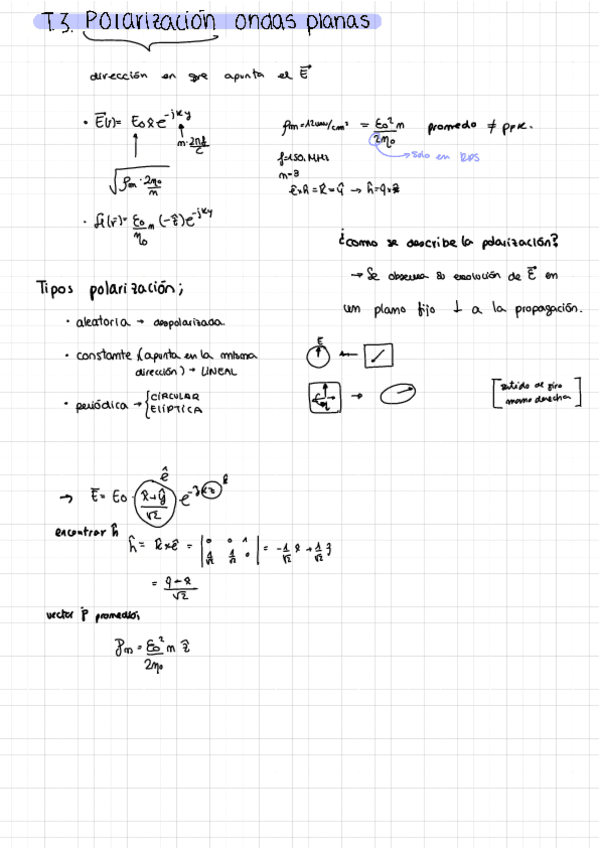 T.3. Polarización ondas planas
dirección en que apunta el E⃗
• E⃗(r)= E₀ x̂ e^-jky
m·2πf/c
√(𝒫m · 2η₀/m)
• H⃗(r)= E₀/η₀ m (-ẑ) e^-jky
𝒫m = 12 mW/cm² = E₀² m / 2η₀ promedio ≠ ppk.
→ solo en RPS
f=150 MHz
¿como se describe la polarización?
→ Se observa evolución de E⃗ en
un plano fijo ⊥ a la propagación.
Tipos polarización;
• aleatoria → despolarizada
• constante (apunta en la misma
dirección) → LINEAL
• periódica → { CIRCULAR
ELÍPTICA
E
[sentido de giro
mano derecha]
ê
→ E⃗ = E₀ · (x̂+ŷ)/√2 e^-jkz
encontrar ĥ
ĥ = k̂×ê = | 0 0 1 | = -1/√2 x̂ + 1/√2 ŷ
| 1/√2 1/√2 0 |
= (ŷ-x̂)/√2
vector P promedio;
𝒫m = E₀²/2η₀ m ẑ